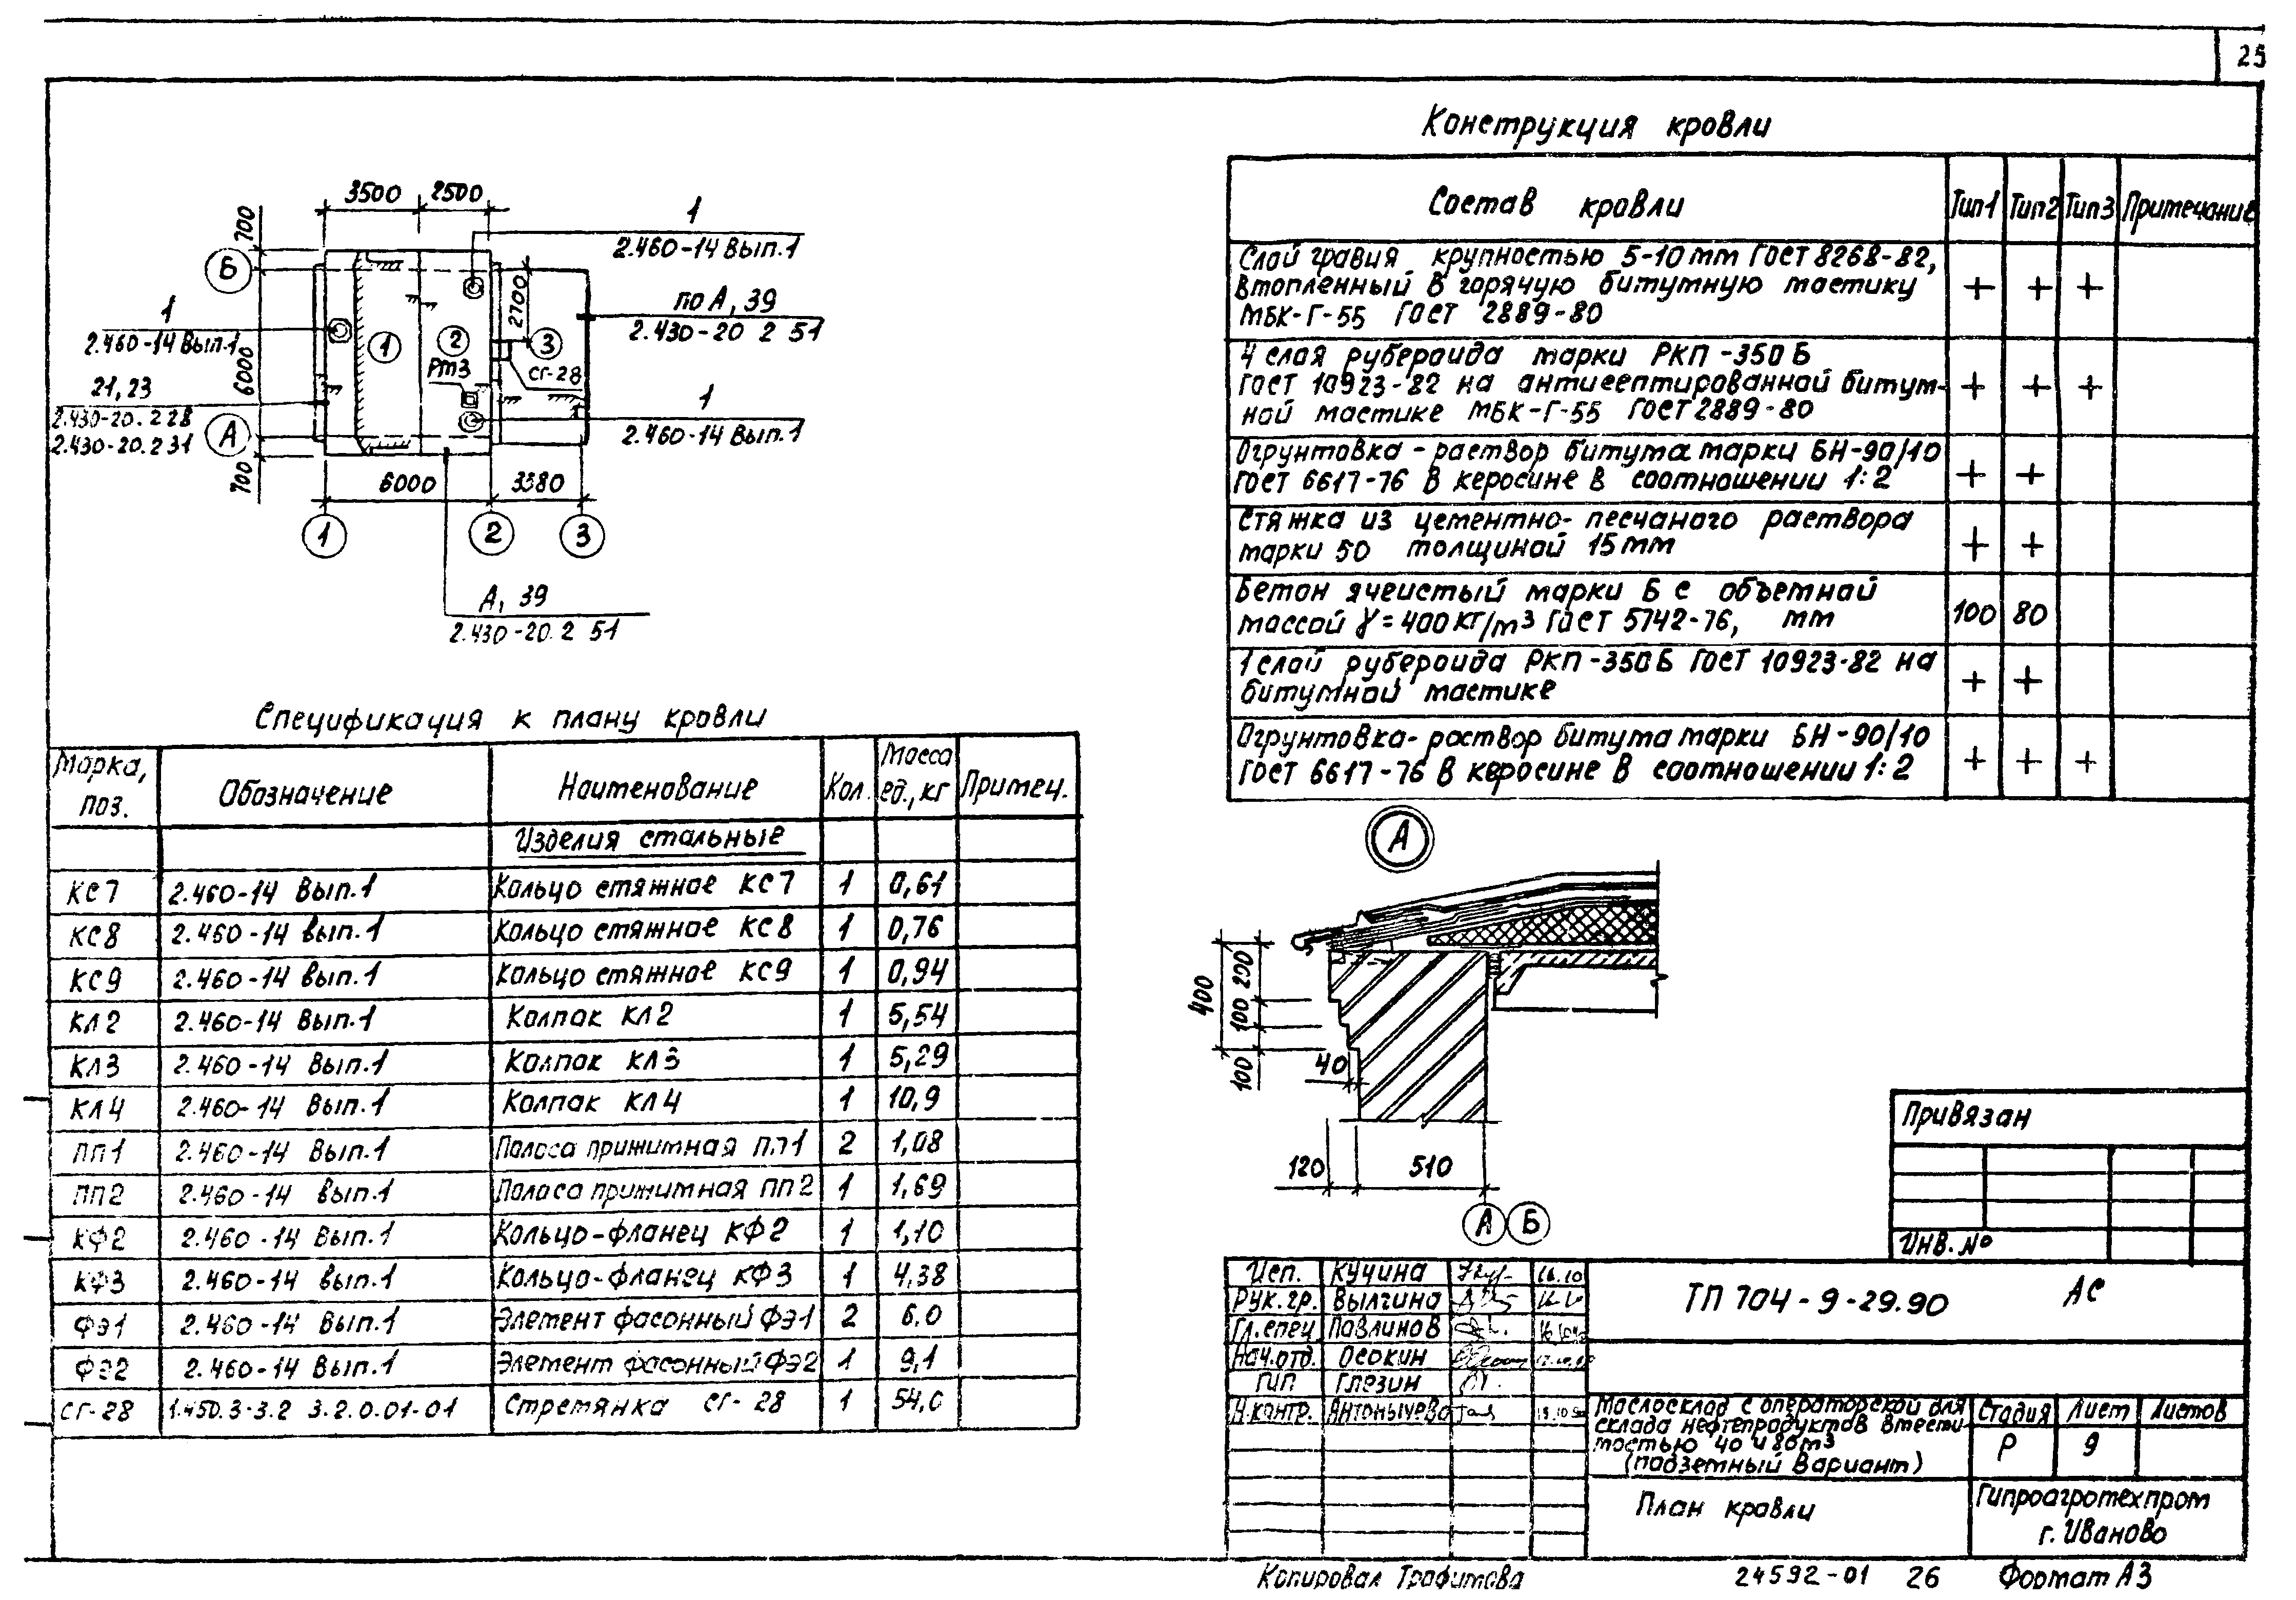 25
3500
2500
700
Б
2700
1
2.460-14 Вып.1
по А, 39
2.430-20 2 51
1
2.460-14 Вып.1
1
2
3
РтЗ
СГ-28
6000
21, 23
2.430-20. 2 28
2.430-20. 2 31
А
1
2.460-14 Вып.1
700
6000
3380
1
2
3
А, 39
2.430-20. 2 51
Конструкция кровли
Состав кровли
Тип1
Тип2
Тип3
Примечание
Слой гравия крупностью 5-10мм ГОСТ 8268-82,
втопленный в горячую битумную мастику
МБК-Г-55 ГОСТ 2889-80
+ + +
4 слоя рубероида марки РКП-350Б
ГОСТ 10923-82 на антисептированной битум-
ной мастике МБК-Г-55 ГОСТ 2889-80
+ + +
Огрунтовка - раствор битума марки БН-90/10
ГОСТ 6617-76 в керосине в соотношении 1:2
+ +
Стяжка из цементно-песчаного раствора
марки 50 толщиной 15мм
+ +
Бетон ячеистый марки Б с объемной
массой γ=400кг/м3 ГОСТ 5742-76, мм
100 80
1 слой рубероида РКП-350Б ГОСТ 10923-82 на
битумной мастике
+ +
Огрунтовка-раствор битума марки БН-90/10
ГОСТ 6617-76 в керосине в соотношении 1:2
+ + +
Спецификация к плану кровли
Марка, поз. Обозначение Наименование Кол. Масса ед., кг Примеч.
Изделия стальные
КС7 2.460-14 Вып.1 Кольцо стяжное КС7 1 0,61
КС8 2.460-14 Вып.1 Кольцо стяжное КС8 1 0,76
КС9 2.460-14 Вып.1 Кольцо стяжное КС9 1 0,94
КЛ2 2.460-14 Вып.1 Колпак КЛ2 1 5,54
КЛ3 2.460-14 Вып.1 Колпак КЛ3 1 5,29
КЛ4 2.460-14 Вып.1 Колпак КЛ4 1 10,9
ПП1 2.460-14 Вып.1 Полоса прижимная ПП1 2 1,08
ПП2 2.460-14 Вып.1 Полоса прижимная ПП2 1 1,69
КФ2 2.460-14 Вып.1 Кольцо-фланец КФ2 1 1,10
КФ3 2.460-14 Вып.1 Кольцо-фланец КФ3 1 4,38
ФЭ1 2.460-14 Вып.1 Элемент фасонный ФЭ1 2 6,0
ФЭ2 2.460-14 Вып.1 Элемент фасонный ФЭ2 1 9,1
СГ-28 1.450.3-3.2 3.2.0.01-01 Стремянка СГ-28 1 54,0
А
400
200
100
100
40
120
510
А
Б
Привязан
Инв.№
Исп. Кучина
Рук.гр. Вылгина
Гл.спец Павлинов
Нач.отд. Осокин
ГИП Глезин
Н.контр. Антонычева
ТП 704-9-29.90 АС
Маслосклад с операторской для
склада нефтепродуктов вмести-
мостью 40 и 80м3
(подземный вариант)
Стадия Лист Листов
Р 9
План кровли
Гипроагротехпром
г. Иваново
Копировал Трофимова
24592-01 26
Формат А3